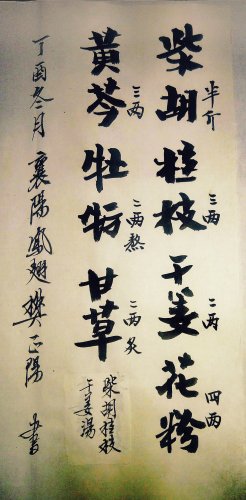 柴胡半斤桂枝三两干姜二两花粉四两
黃芩三两牡蛎二两熬甘草二两炙
柴胡桂枝
干姜湯
丁酉冬月襄陽鳳翅樊正陽書